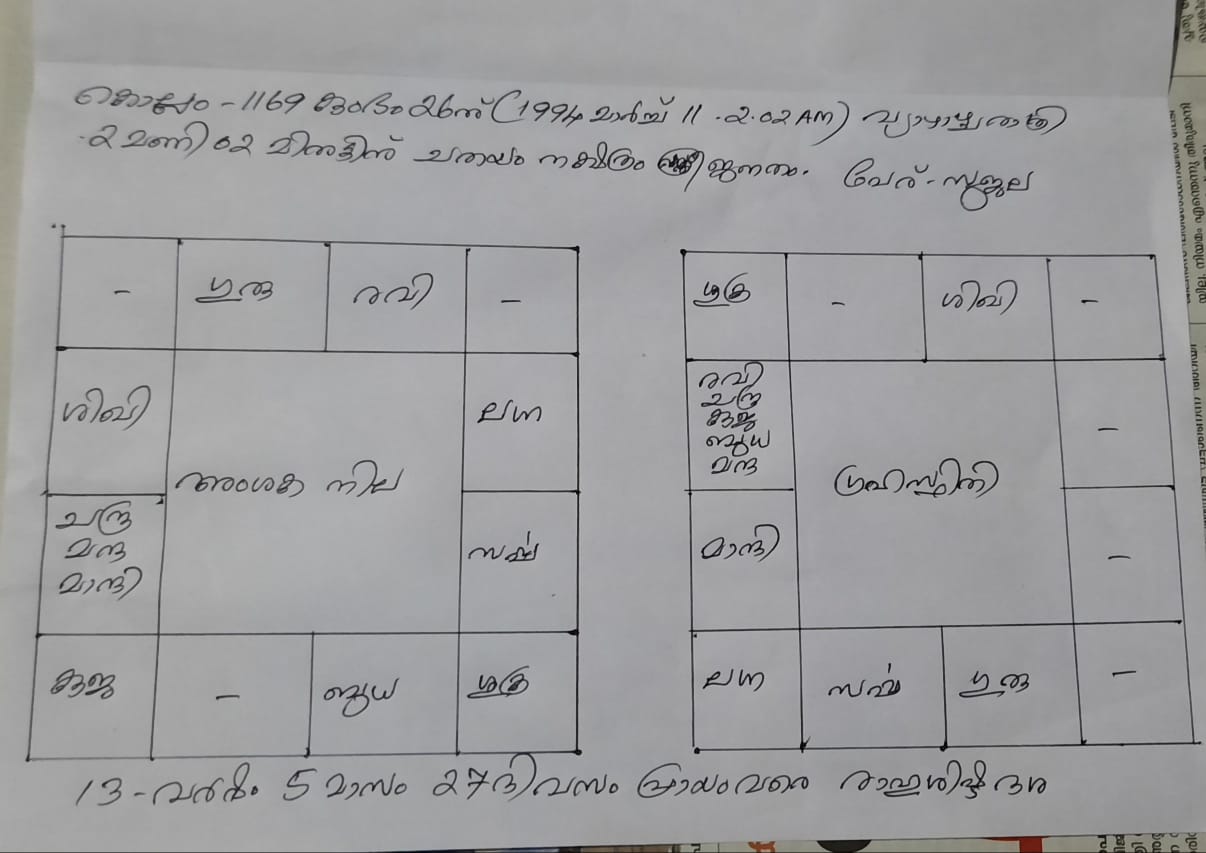 കൊല്ലം - 1169 കുംഭം 26ന് (1994 മാർച്ച് 11 . 2.02 AM) വ്യാഴാഴ്ച രാത്രി
2 മണി 02 മിനുട്ടിന് ചതയം നക്ഷത്രം സ്ത്രീ ജനനം. പേര് - സുജല
- ഗുരു രവി -
ശിഖി ലഗ്ന
അംശക നില
ചന്ദ്ര
മന്ദ
മാന്ദി
സർപ്പ
കുജ - ബുധ ശുക്ര
ശുക്ര - ശിഖി -
രവി
ചന്ദ്ര
കുജ
ബുധ
മന്ദ
-
ഗ്രഹസ്ഥിതി
മാന്ദി -
ലഗ്ന സർപ്പ ഗുരു -
13 - വർഷം 5 മാസം 27 ദിവസം പ്രായം വരെ രാഹു ശിഷ്ട ദശ